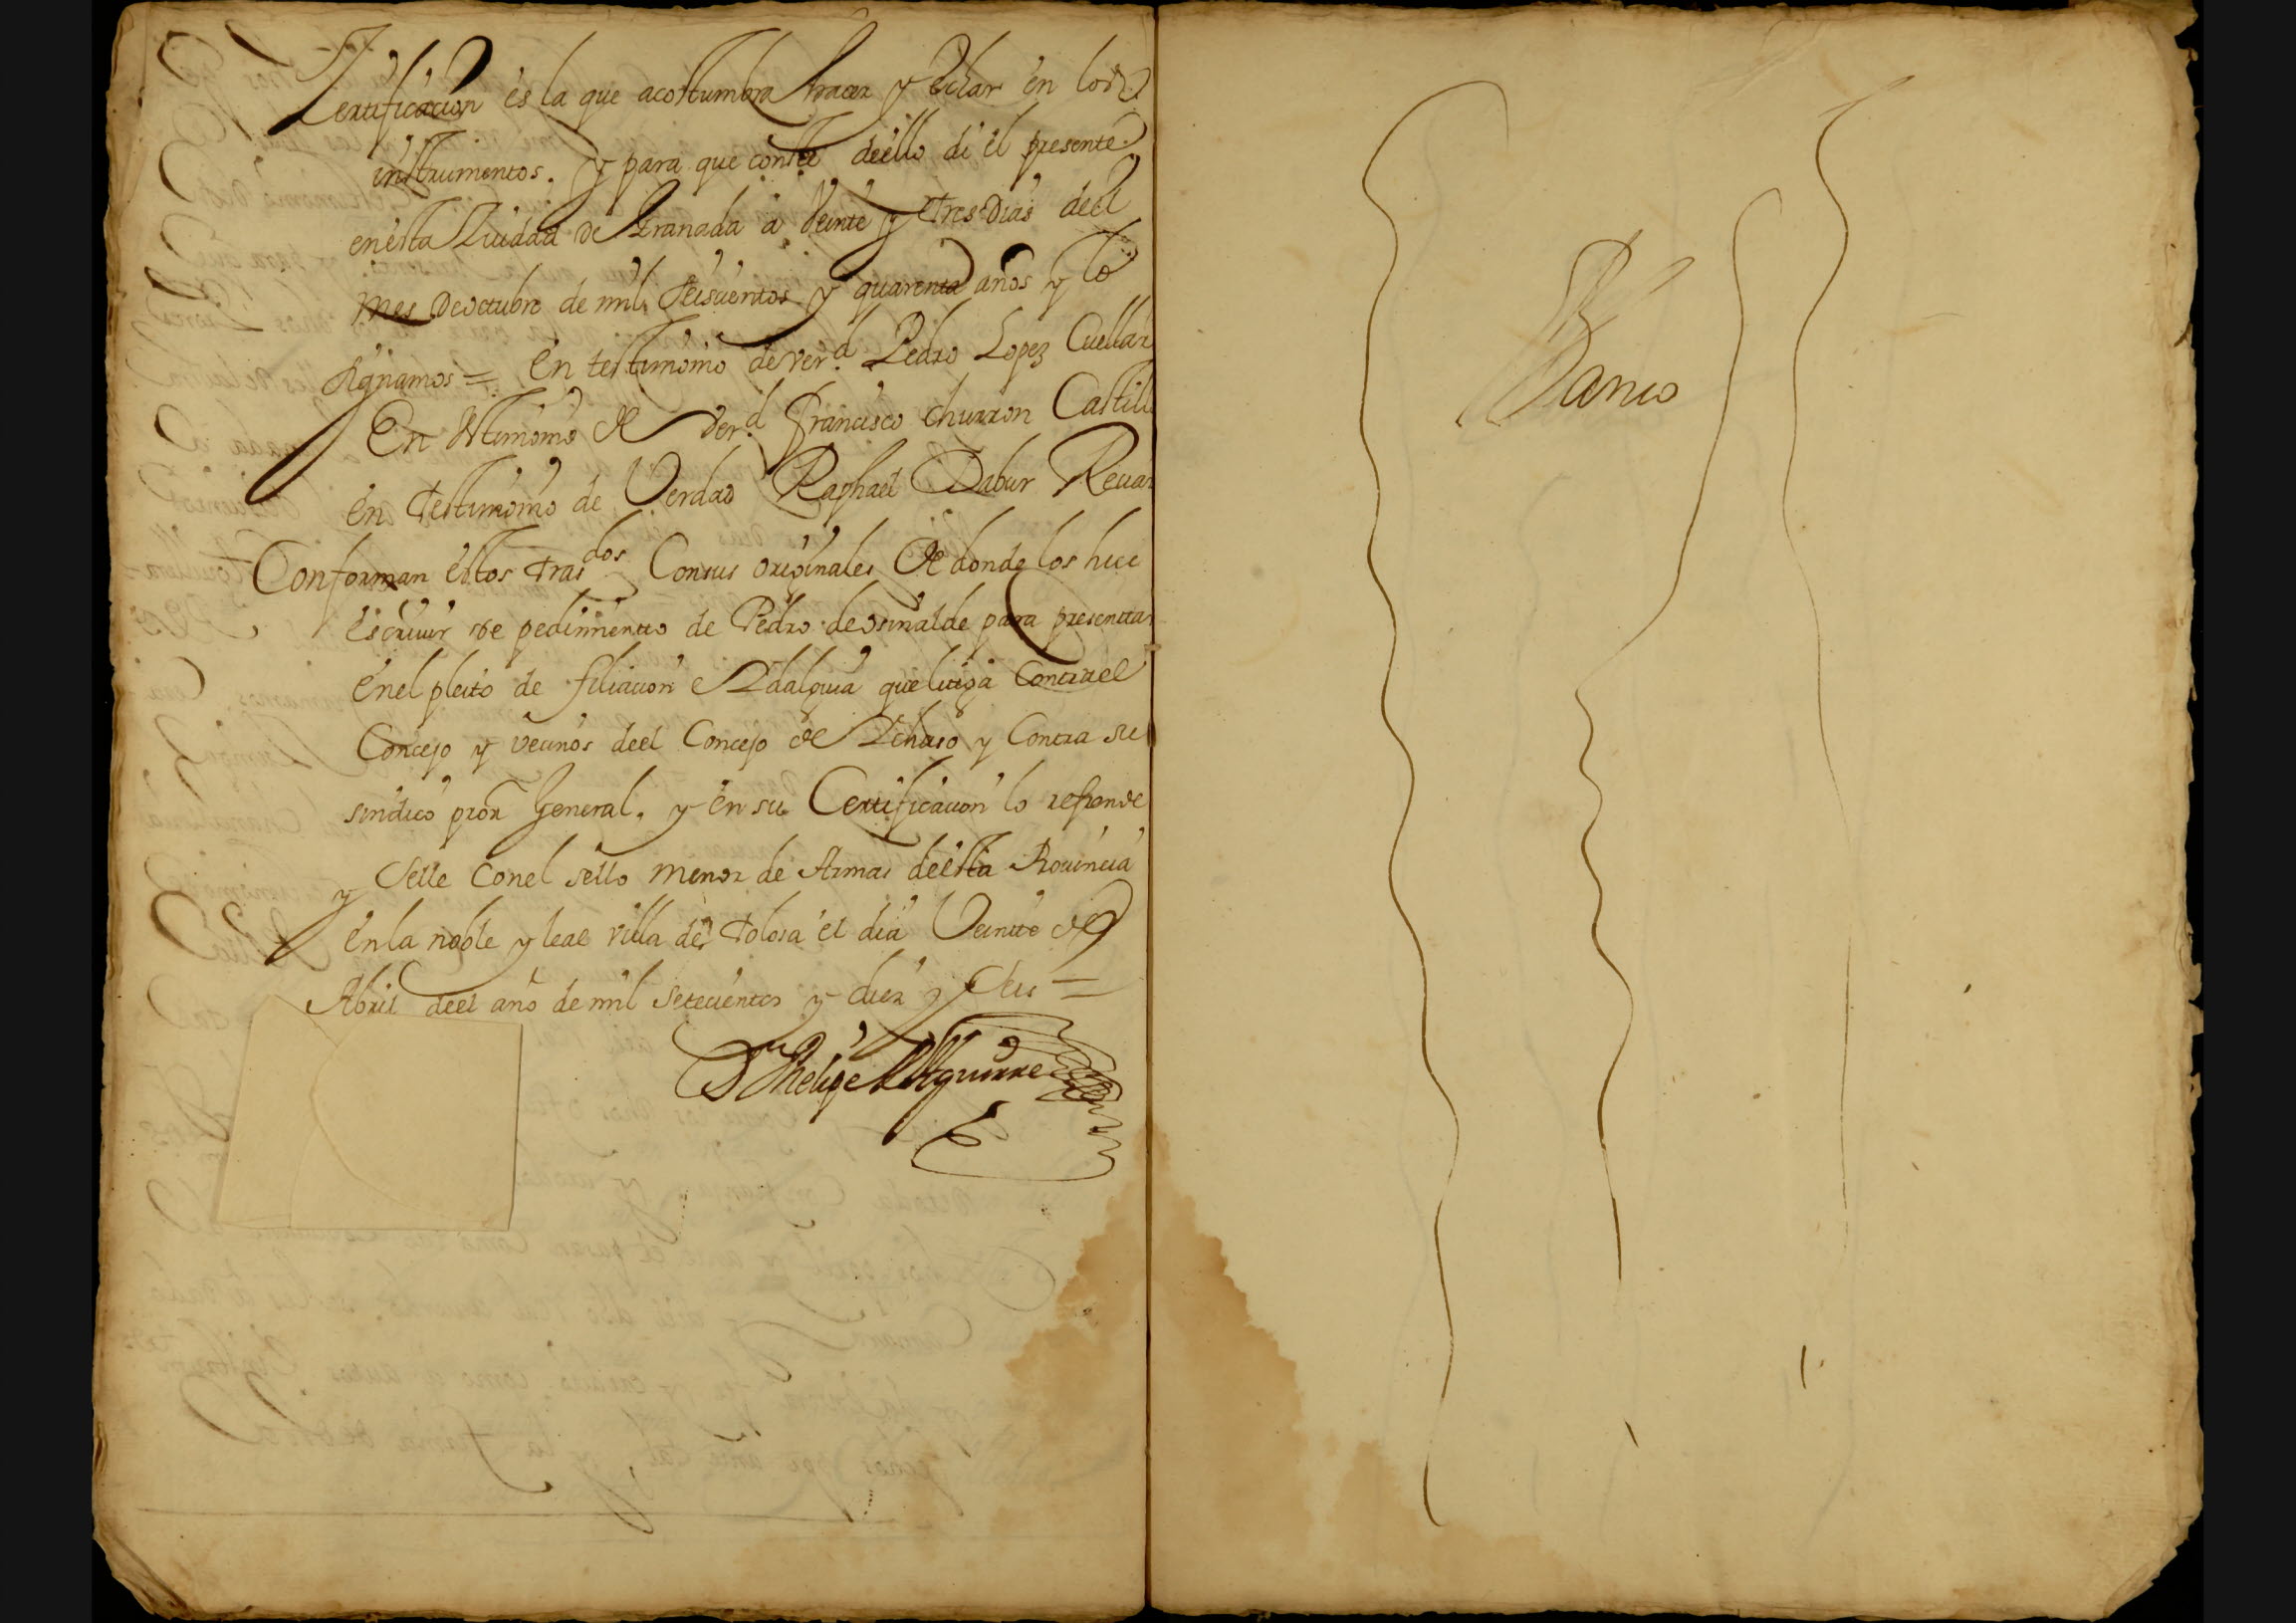 Certificacion es la que acostumbra hacer y Echar en los
instrumentos. y para que conste deello di el presente
enesta Ciudad de Granada a Veinte y tres Dias deel
mes Deoctubre de mil seiscientos y quarenta años y lo
signamos = En testimonio de verd. Pedro Lopez Cuellar
En testimonio de verd. francisco churron Castill
En Testimonio de Verdad Raphael Dabur
Conforman estos trasdos Consus originales de donde los hice
escriuir de pedimiento de Pedro deosinalde para presentar
enel pleito de filiacion e Ydalguia que litiga Contra el
Concejo y vecinos deel Concejo de Ychaso y Contra su
sindico pror General. y en su Certificacion lo refrende
y Selle Conel sello menor de Armas deesta Prouincia
enla noble y leal villa de tolosa el dia Veinte de
Abril deel año de mil setecientos y diez y Seis =
Dn Phelipe de Aguirre
Blanco